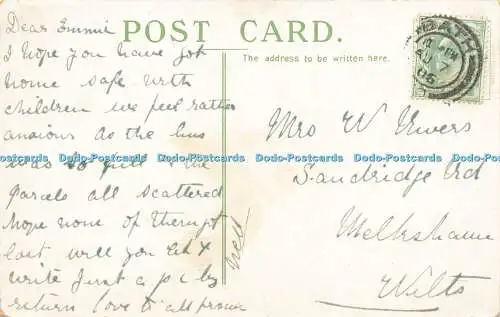 POST CARD.
The address to be written here.
BATH
05
Dear Emmie
I hope you have got
home safe with
children we feel rather
anxious as the bus
was so full & the
parcels all scattered
hope none of them got
lost will you let
write just a p c by
return love to all from
Nell
Mrs W
Sandridge Rd
Melksham
Wilts
Da Postcards Co Uk Da Postcards Co Uk Da Postcards Co Uk Da Postcards Co Uk Da Postcards Co Uk